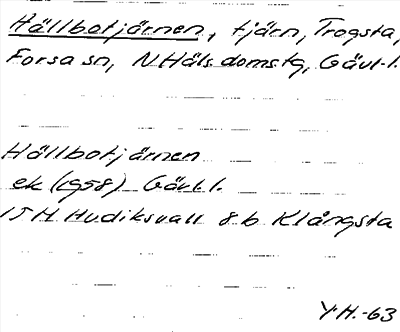 Hällbotjärnen, tjärn, Trogsta,
Forsa sn, N Häls. domstg, Gävl.l.
Hällbotjärnen
ek (1958) Gävl.l.
15 H Hudiksvall 8 b Klångsta
Y.H.-63